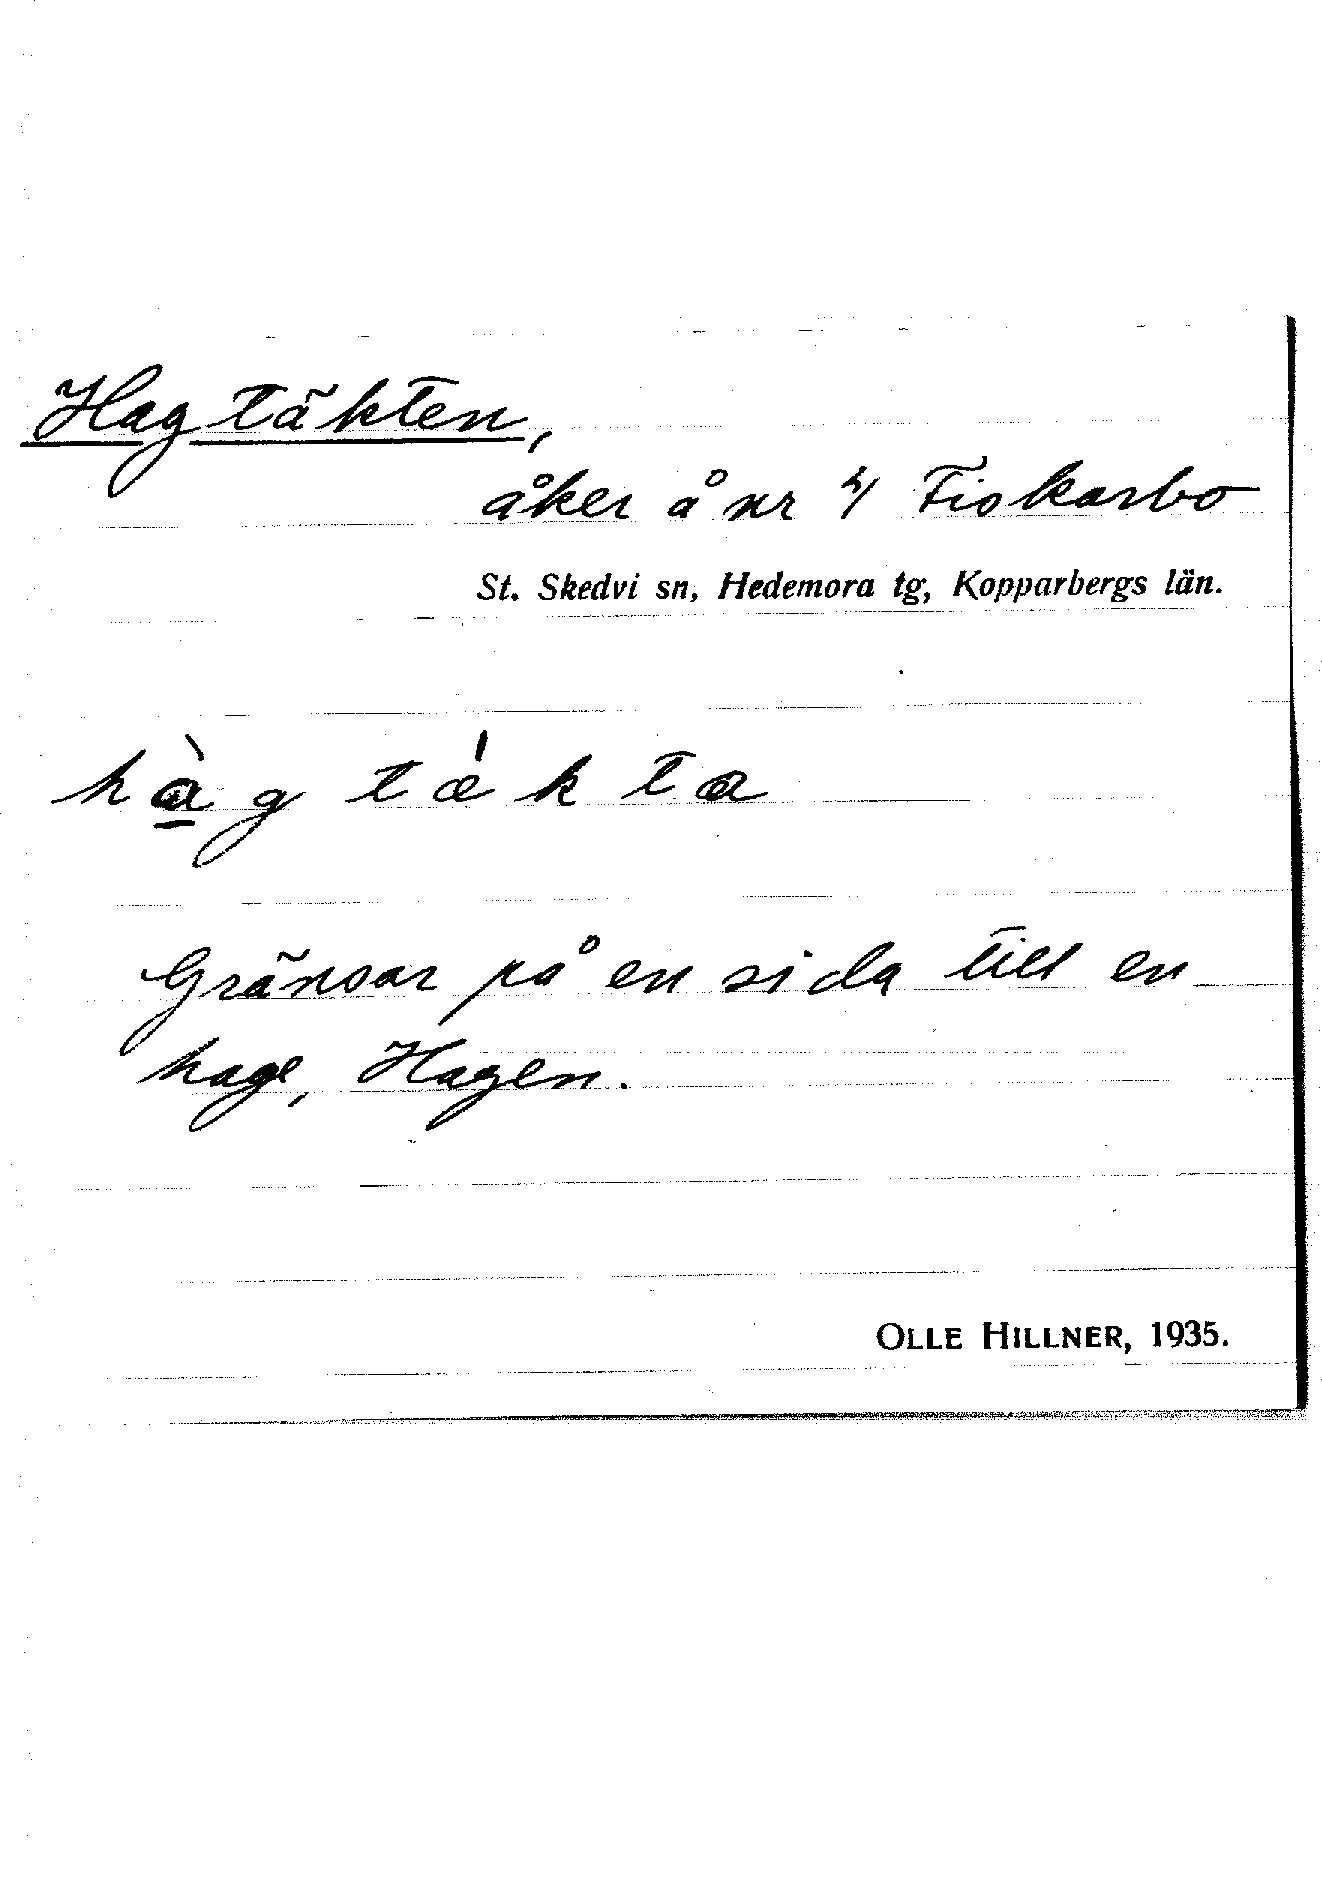 Hagtäkten,
åker å nr 4 Fiskarbo
St. Skedvi sn, Hedemora tg, Kopparbergs län.
hà̱g tǽk ta
Gränsar på en sida till en
hage, Hagen.
OLLE HILLNER, 1935.